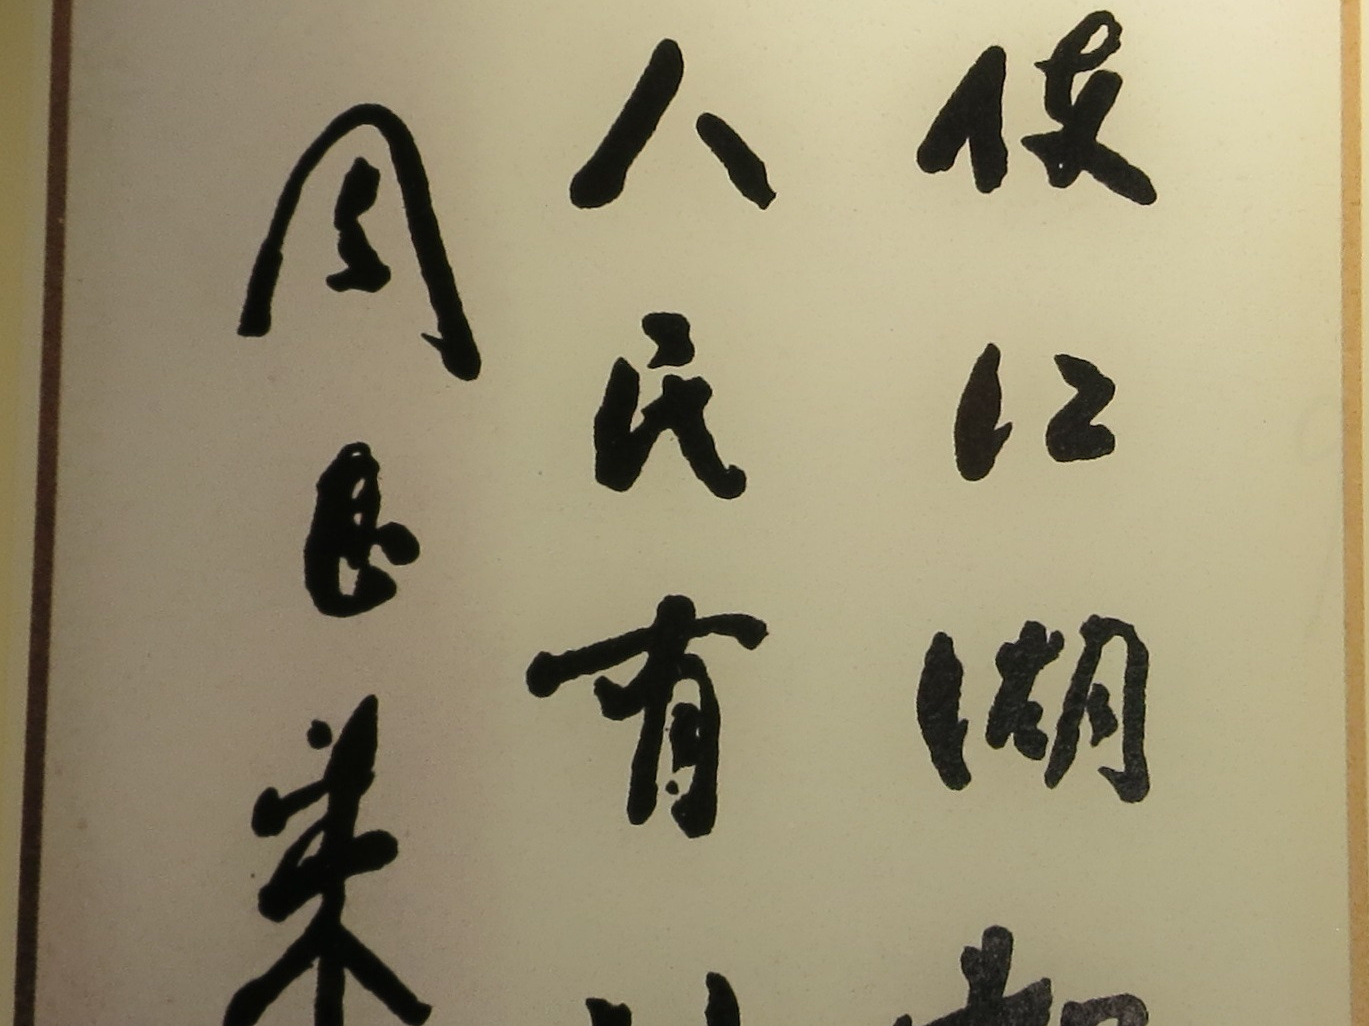 使江湖
人民有
周恩来